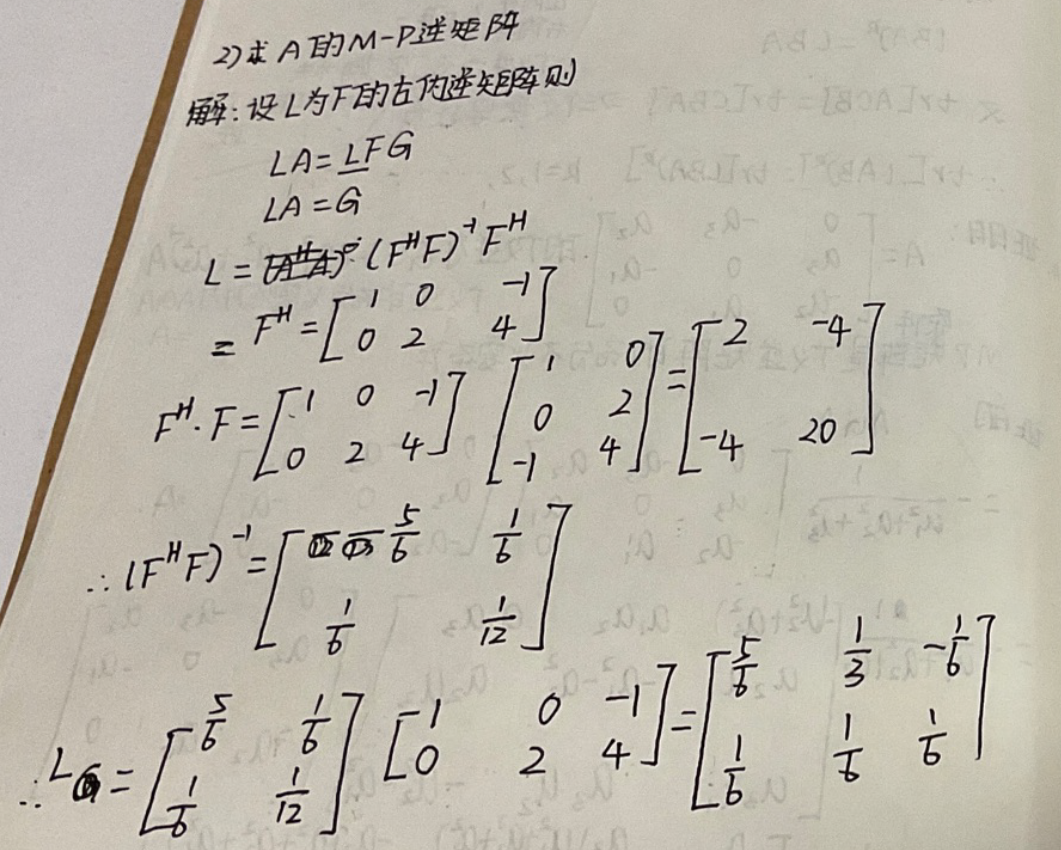 2)求A的M-P逆矩阵
解:设L为F的左伪逆矩阵则
LA=LFG
LA=G
L=(F^H F)^-1 F^H
= F^H=[1 0 -1; 0 2 4]
F^H·F=[1 0 -1; 0 2 4] [1 0; 0 2; -1 4]=[2 -4; -4 20]
∴(F^H F)^-1=[5/6 1/6; 1/6 1/12]
∴L=[5/6 1/6; 1/6 1/12] [1 0 -1; 0 2 4]=[5/6 1/3 -1/6; 1/6 1/6 1/6]